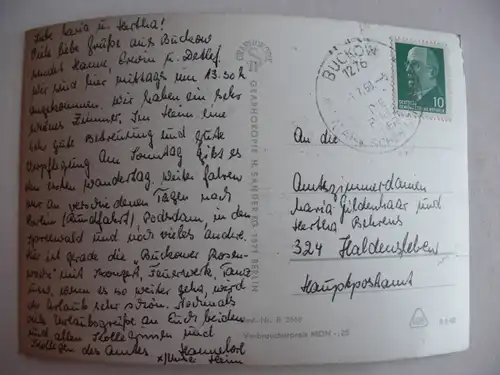 Liebe Maria u. Hertha!
Viele liebe Grüße aus Buckow
sendet Hanne, u. Detlef.
Wir sind hier mittags um 13.50 h
angekommen. Wir haben ein sehr
schönes Zimmer. Im Heim eine
sehr gute Betreuung und gute
Verpflegung. Am Sonntag gibt es
den ersten Wandertag. Weiter fahren
wir an verschiedenen Tagen nach
Berlin (Rundfahrt), Potsdam, in den
Spreewald und noch vieles andere.
Hier ist gerade die "Buckower Rosen-
woche" mit Konzert, Feuerwerk, Tanz
usw, wenn es so weiter geht, wird
der Urlaub sehr schön. Nochmals
viele Urlaubsgrüße an Euch beiden
und allen Kolleginnen und
Kollegen des Amtes Hannelore
x) Unser Heim
GRAPHOKOPIE H. SANDER KG, 1071 BERLIN
BUCKOW
1276
10
An die
Amtszimmerdamen
Maria Hildenhaar und
Hertha Behrens
324 Haldensleben
Hauptpostamt
Best.-Nr. B 2669
Verbraucherpreis MDN -,20